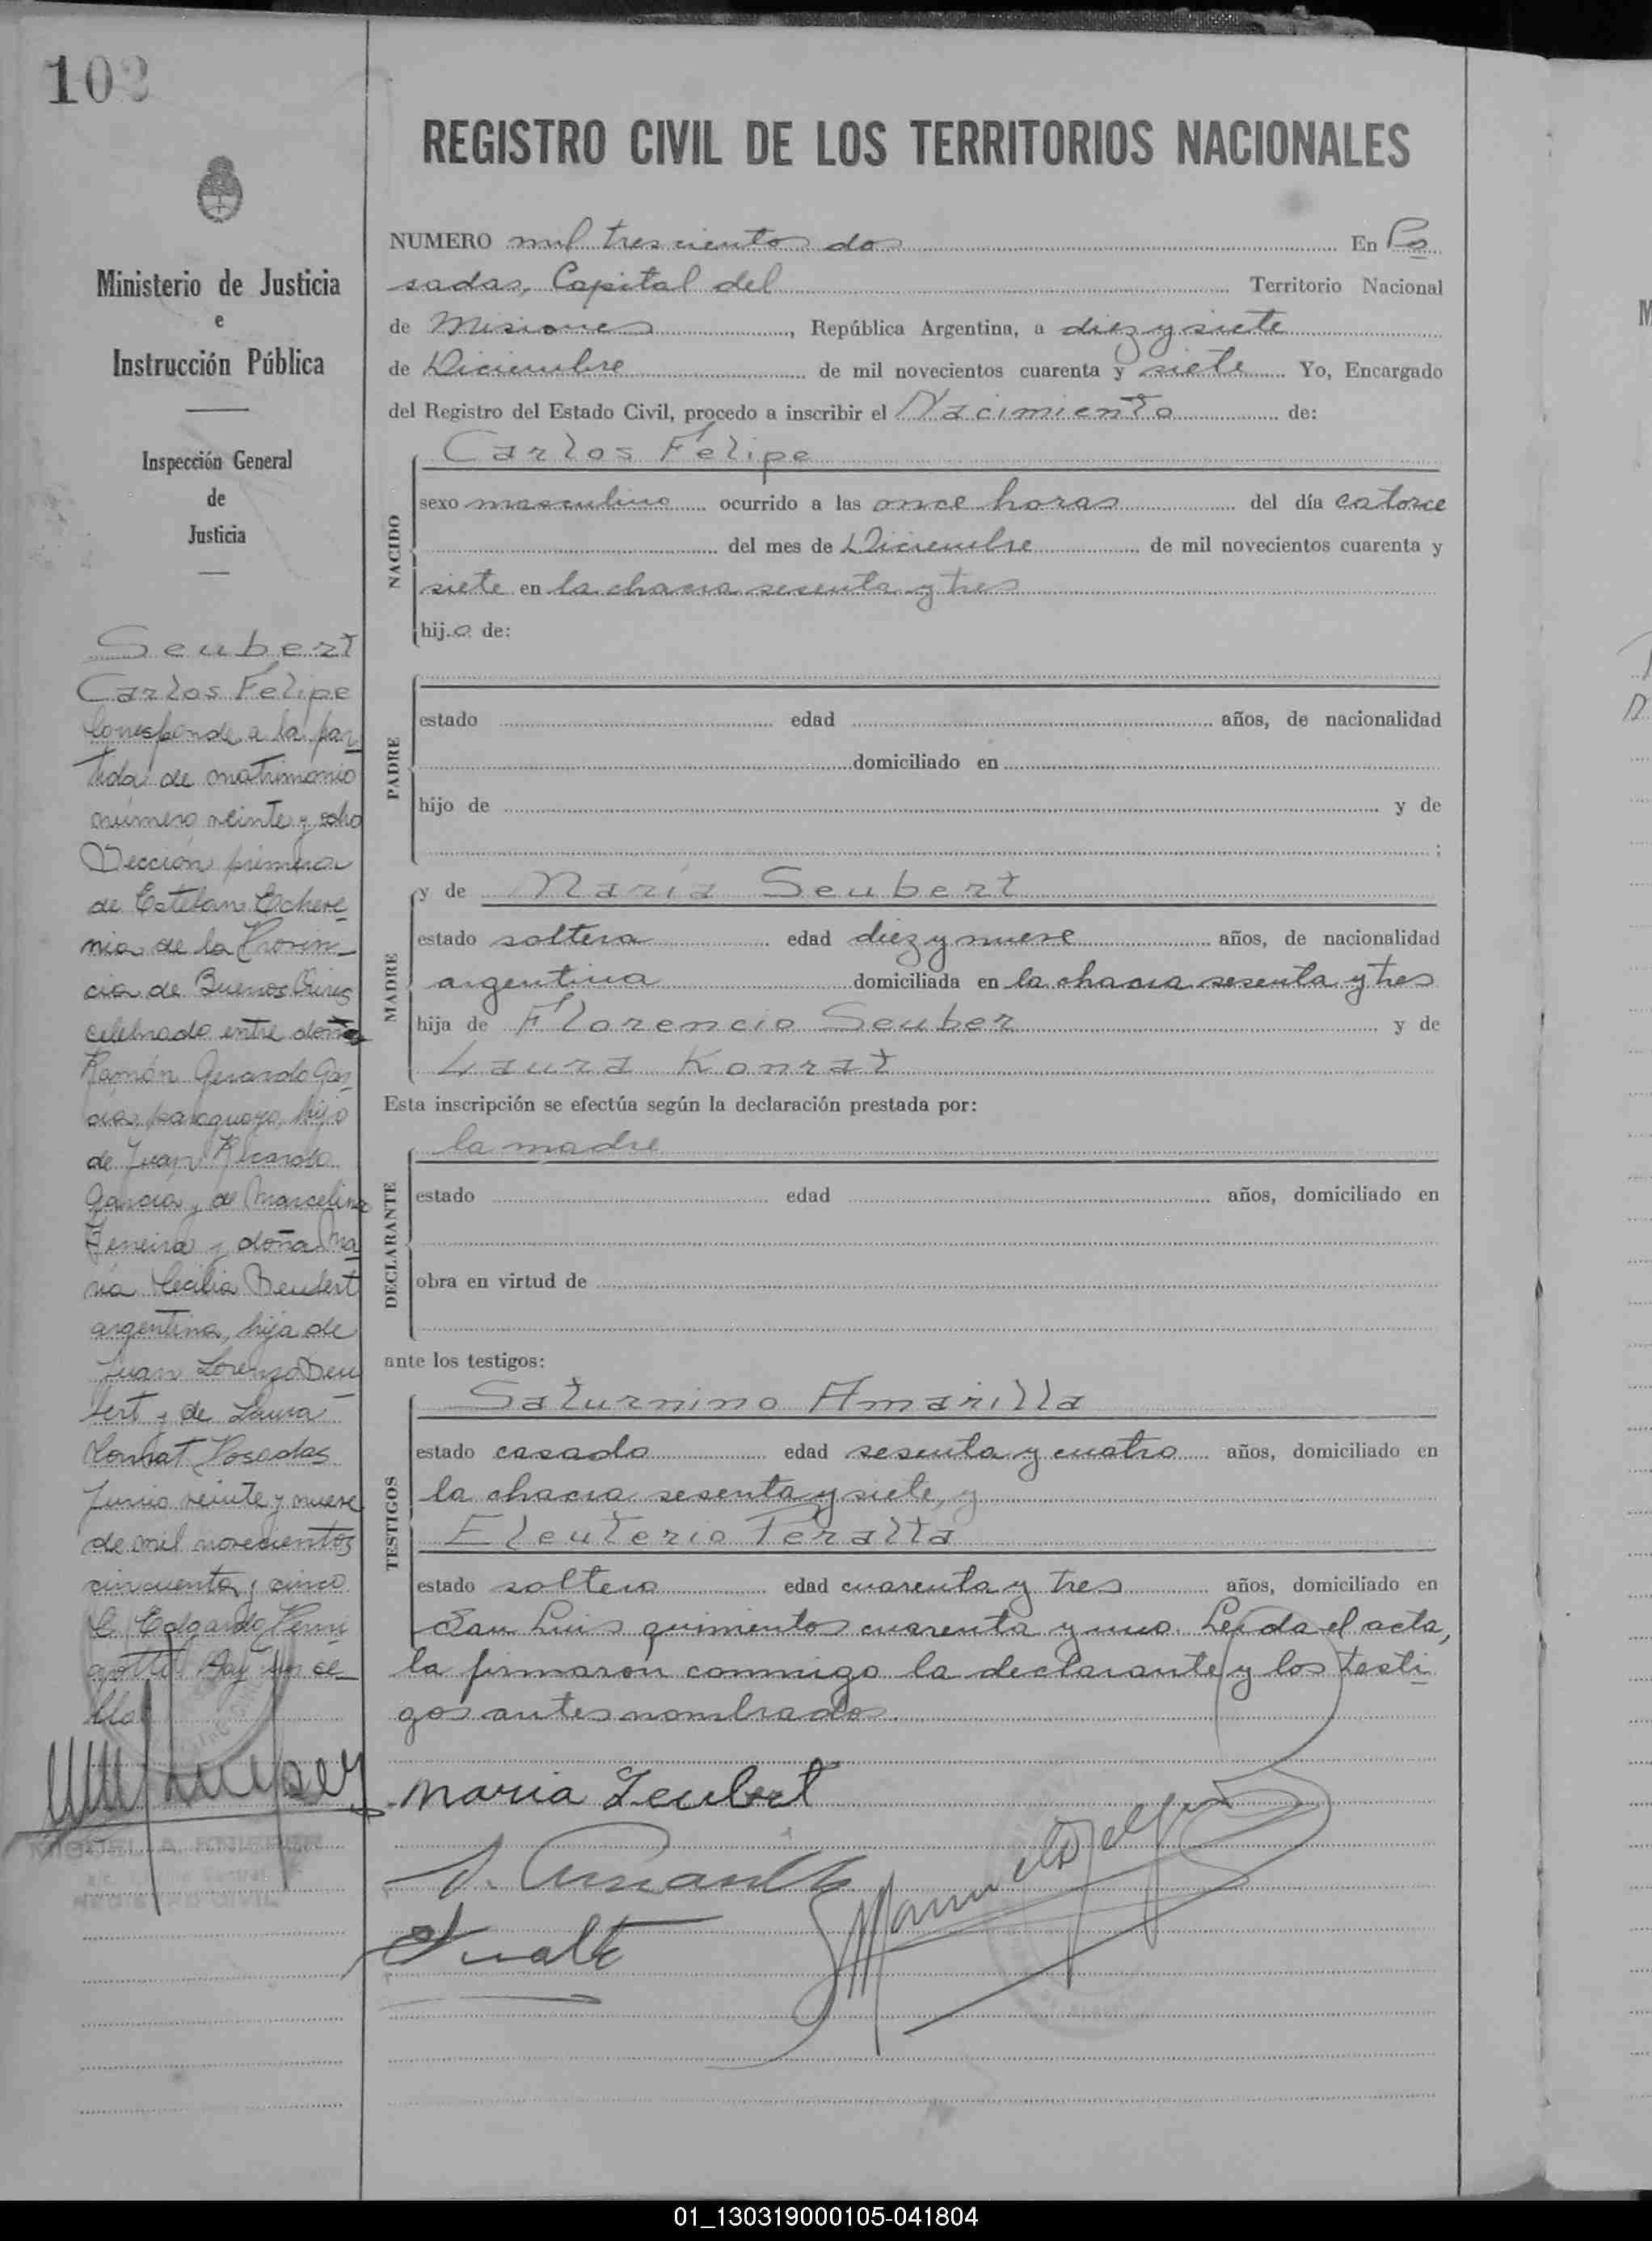 102
Ministerio de Justicia
e
Instrucción Pública
Inspección General
de
Justicia
Seubert
Carlos Felipe
Corresponde a la par
tida de matrimonio
número veinte y ocho
Sección primera
de Esteban Echeve
rria de la Provin
cia de Buenos Aires
celebrado entre don
Ramón Gerardo Gar
cia, paraguayo, hijo
de Juan Ricardo
García y de Marcelina
Ferreira y doña Ma
ria Cecilia Seubert
argentina, hija de
Juan Lorenzo Seu
bert y de Laura
Konrat Posadas
Junio veinte y nueve
de mil novecientos
cincuenta y cinco
Edgardo
Hay un se
llo
MIGUEL A. KNIEPER
REGISTRO CIVIL
REGISTRO CIVIL DE LOS TERRITORIOS NACIONALES
NUMERO mil trescientos dos En Po
sadas, Capital del Territorio Nacional
de Misiones, República Argentina, a diez y siete
de Diciembre de mil novecientos cuarenta y siete Yo, Encargado
del Registro del Estado Civil, procedo a inscribir el Nacimiento de:
NACIDO
Carlos Felipe
sexo masculino ocurrido a las once horas del día catorce
del mes de Diciembre de mil novecientos cuarenta y
siete en la chacra sesenta y tres
hijo de:
PADRE
estado edad años, de nacionalidad
domiciliado en
hijo de y de
;
MADRE
y de María Seubert
estado soltera edad diez y nueve años, de nacionalidad
argentina domiciliada en la chacra sesenta y tres
hija de Florencio Seuber y de
Laura Konrat
Esta inscripción se efectúa según la declaración prestada por:
DECLARANTE
la madre
estado edad años, domiciliado en
obra en virtud de
ante los testigos:
TESTIGOS
Saturnino Amarilla
estado casado edad sesenta y cuatro años, domiciliado en
la chacra sesenta y siete, y
Eleuterio Peralta
estado soltero edad cuarenta y tres años, domiciliado en
San Luis quinientos cuarenta y uno Leída el acta,
la firmaron conmigo la declarante y los testi
gos antes nombrados.
Maria Seubert
S. Amarilla
01_130319000105-041804